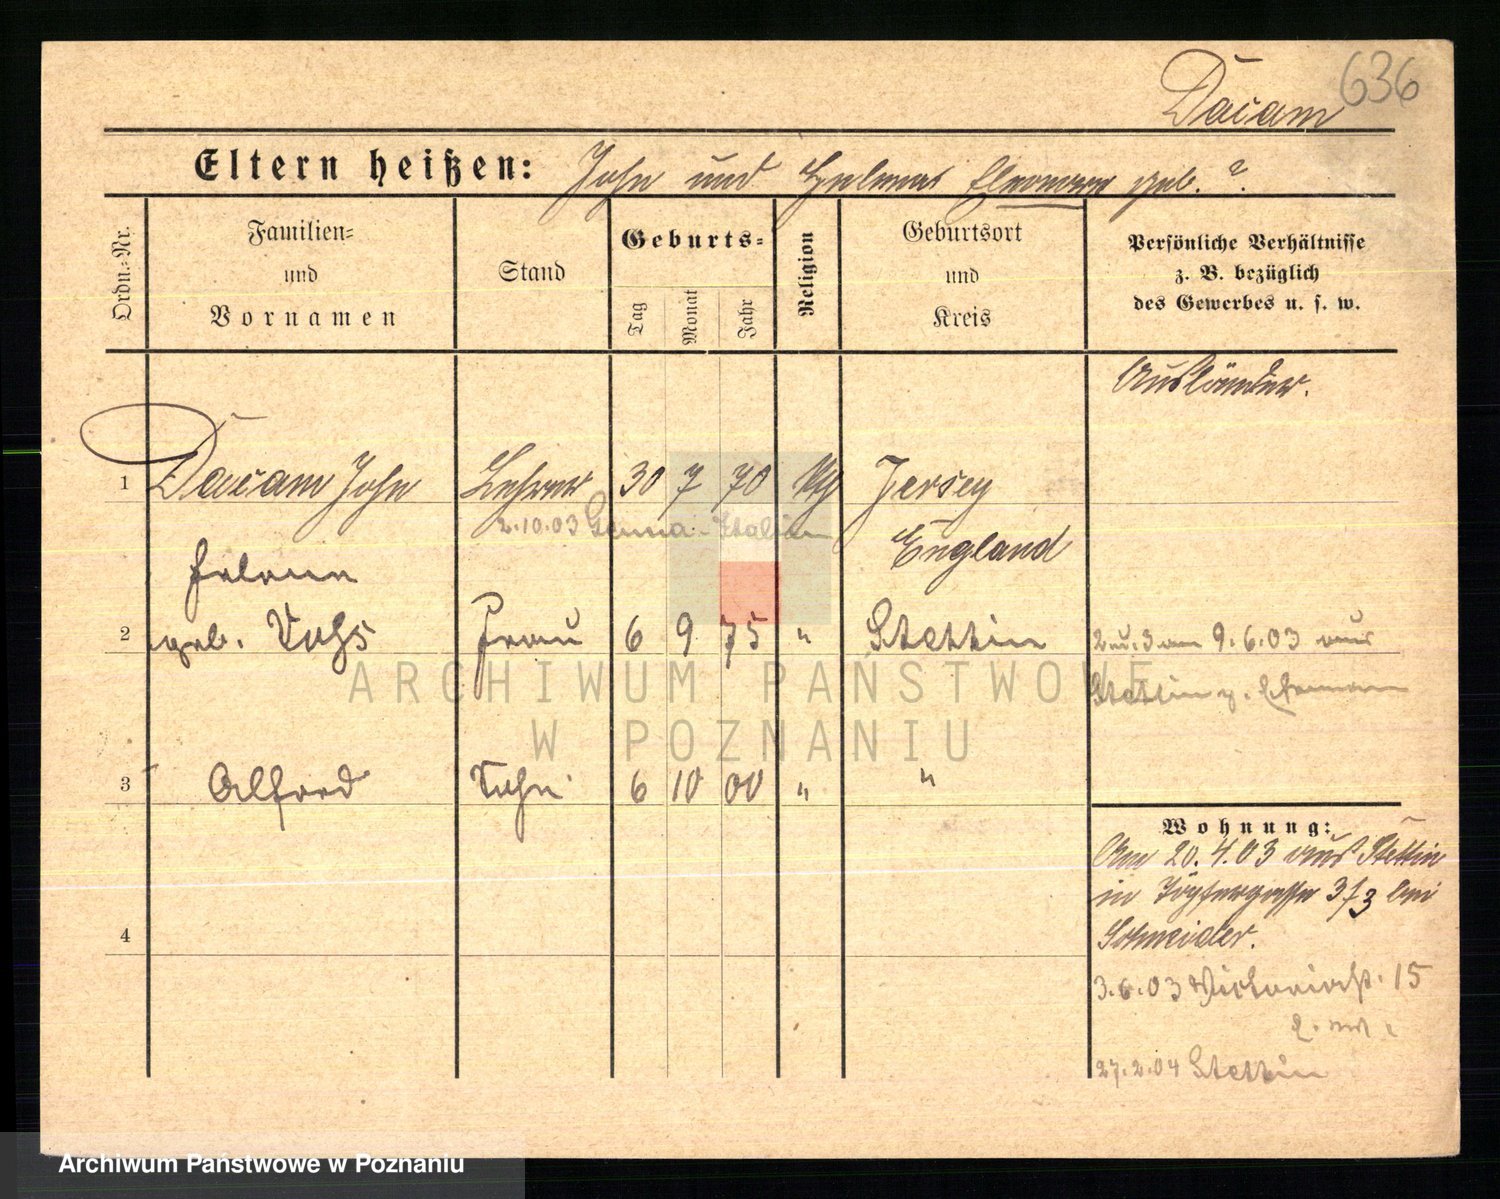 636
Dacam
Eltern heißen: John und Eleonore geb. ?.
Ordn.-Nr.
Familien-
und
Vornamen
Stand
Geburts-
Tag
Monat
Jahr
Religion
Geburtsort
und
Kreis
Persönliche Verhältnisse
z. B. bezüglich
des Gewerbes u. s. w.
Ausländer.
1 Dacam John Lehrer 30 7 70 Jersey
2.10.03 Genua-Italien
England
Helene
2 geb. Frau 6 9 75 " Stettin
2 u. 3 am 9.6.03 aus
Stettin z. Ehemann
3 Alfred Sohn 6 10 00 " "
Wohnung:
Am 20.4.03 aus Stettin
in Töpfergasse 3 bei
Schneider.
4
3.6.03 Victoriastr. 15
27.2.04 Stettin
ARCHIWUM PAŃSTWOWE
W POZNANIU
Archiwum Państwowe w Poznaniu